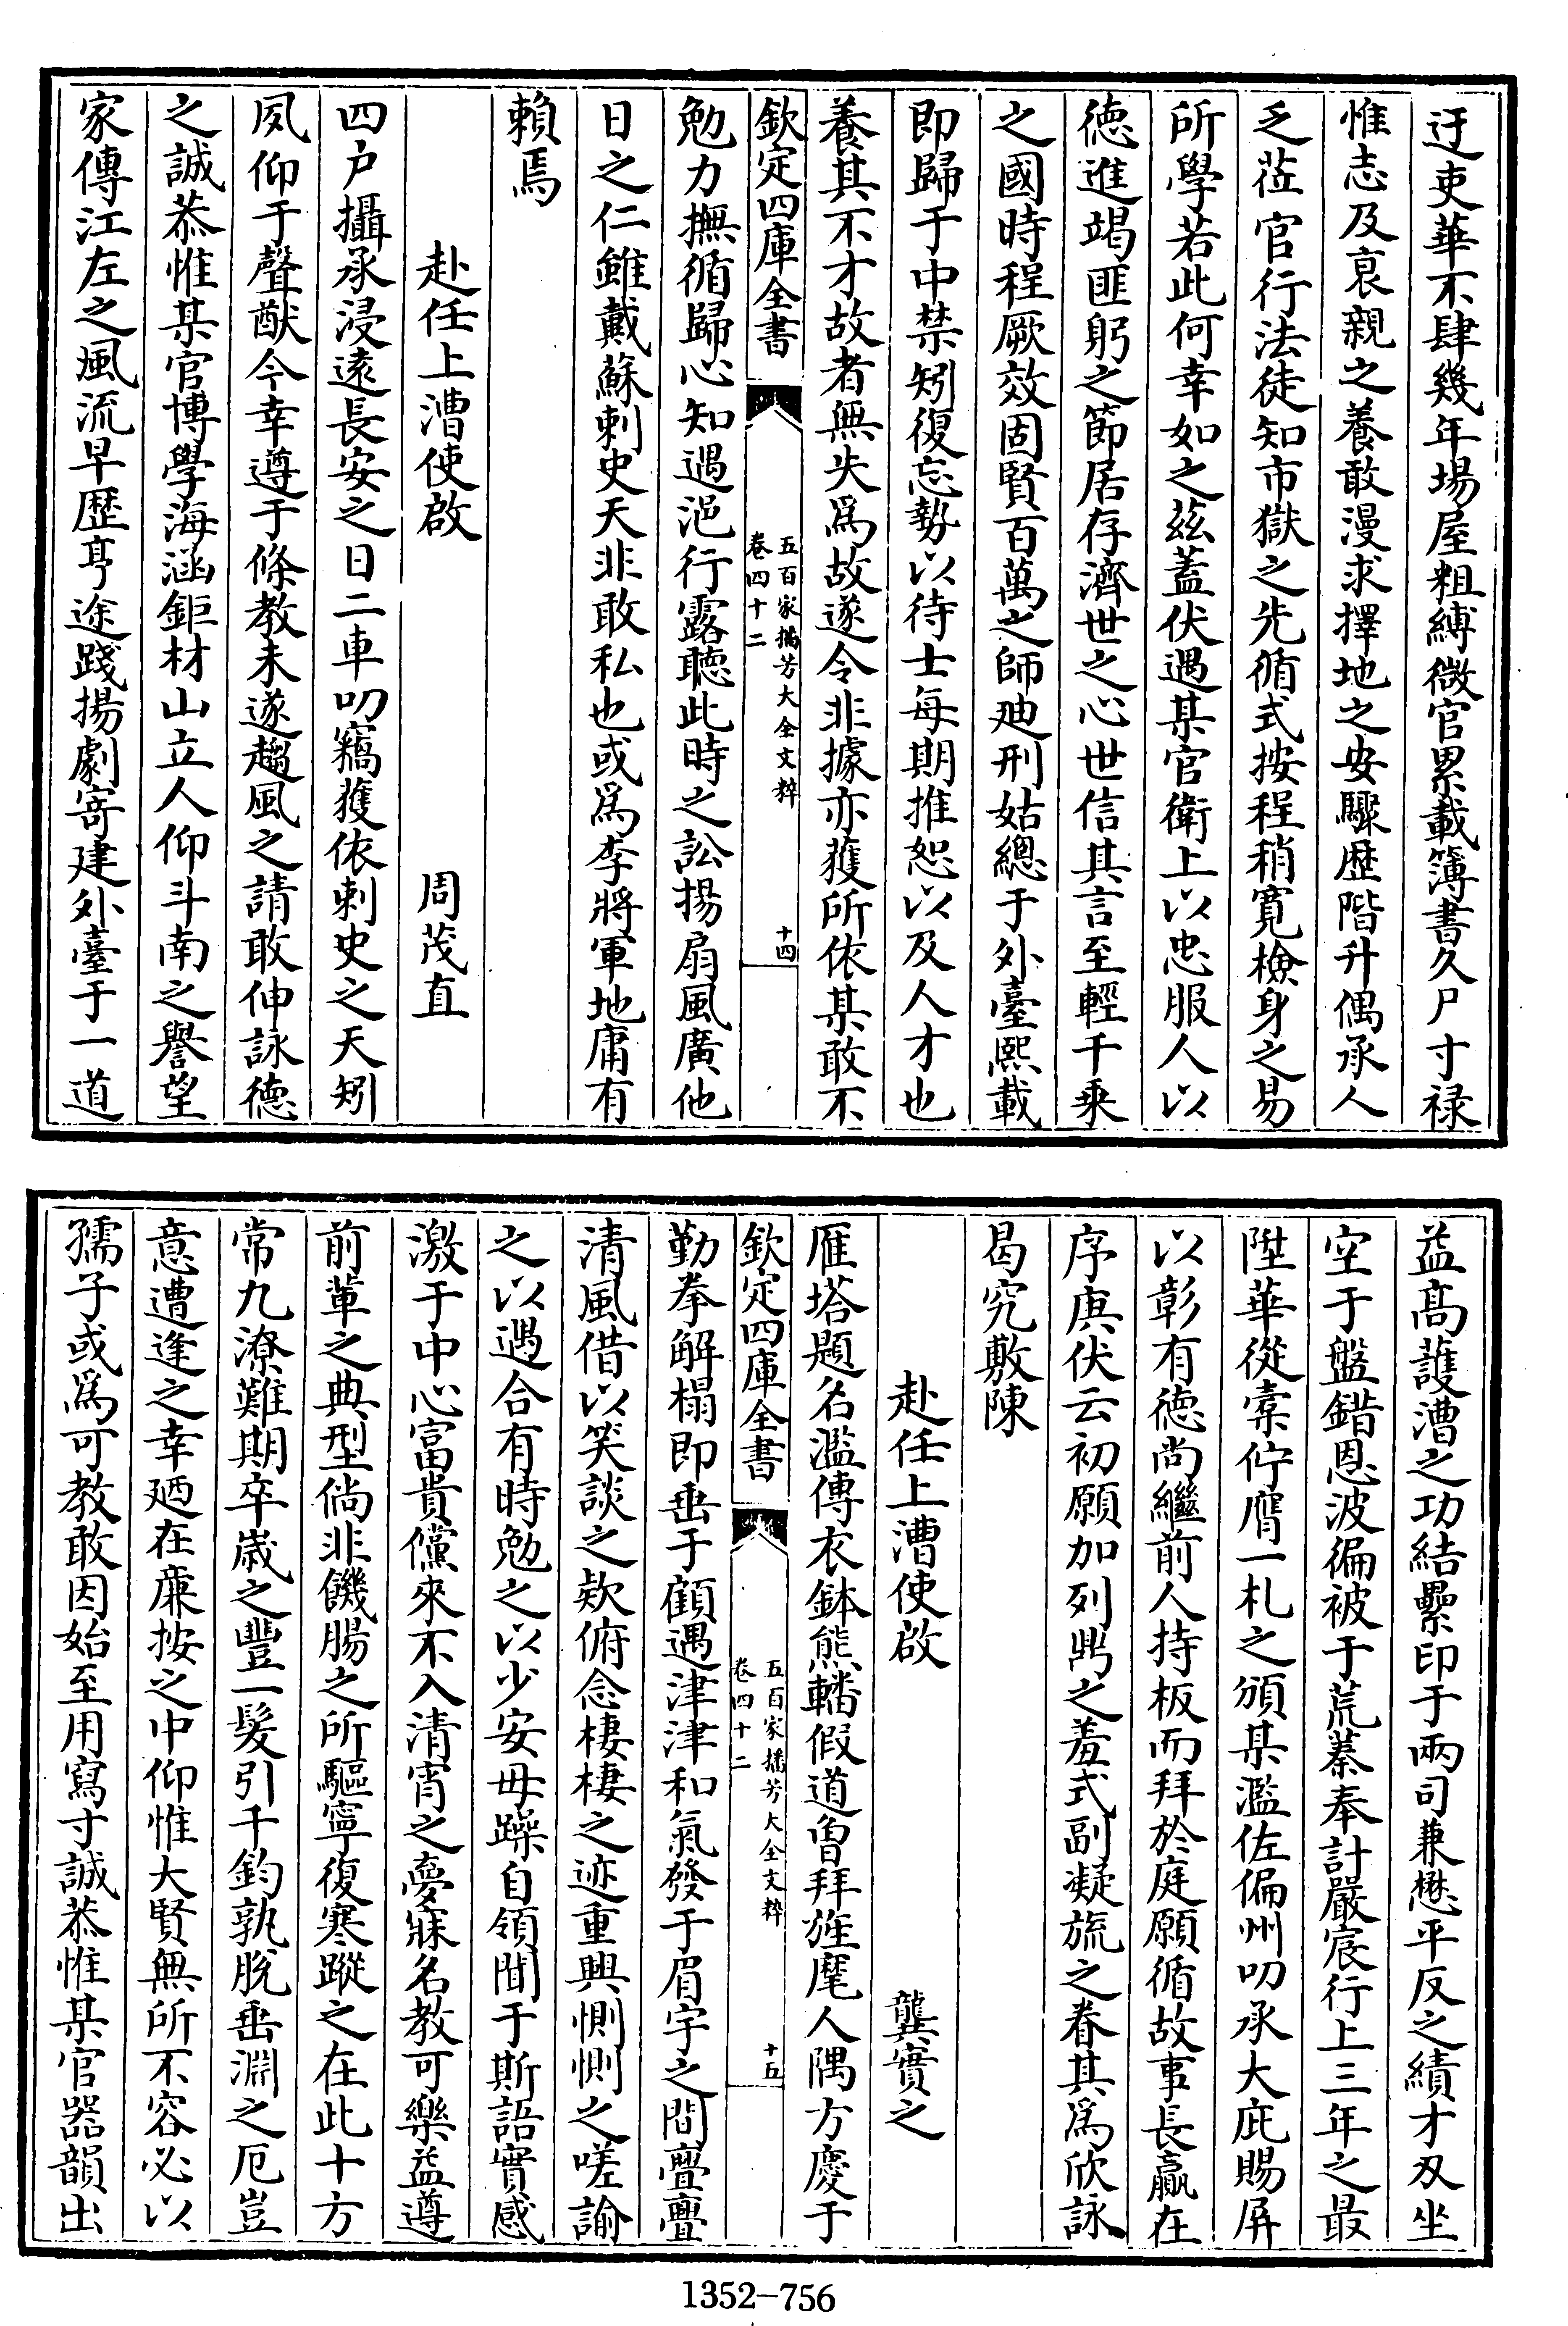 迂吏華不肆幾年場屋粗縛微官累載簿書久尸寸禄
惟志及哀親之養敢漫求擇地之安驟歴階升偶承人
乏莅官行法徒知市獄之先循式按程稍寛檢身之易
所學若此何幸如之兹蓋伏遇某官衛上以忠服人以
徳進竭匪躬之節居存濟世之心世信其言至輕千乗
之國時程厥效固賢百萬之師廸刑姑總于外臺熙載
即歸于中禁矧復忘勢以待士每期推恕以及人才也
養其不才故者無失爲故遂令非據亦獲所依某敢不
欽定四庫全書
五百家播芳大全文粹
卷四十二
十四
勉力撫循歸心知遇浥行露聴此時之訟揚扇風廣他
日之仁雖戴蘇刺史天非敢私也或爲李將軍地庸有
賴焉
赴任上漕使啟 周茂直
四户攝承浸逺長安之日二車叨竊獲依刺史之天矧
夙仰于聲猷今幸遵于條教未遂趨風之請敢伸詠德
之誠恭惟某官博學海涵鉅材山立人仰斗南之譽望
家傳江左之風流早歴亨途踐揚劇寄建外臺于一道
益髙護漕之功結纍印于兩司兼懋平反之績才刃坐
空于盤錯恩波徧被于荒蓁奉計嚴宸行上三年之最
陞華從槖佇膺一札之頒某濫佐偏州叨承大庇賜屏
以彰有徳尚繼前人持板而拜於庭願循故事長贏在
序庚伏云初願加列鼎之羞式副凝旒之眷其爲欣詠
曷究敷陳
赴任上漕使啟 龔實之
雁塔題名濫傳衣鉢熊轓假道曽拜旌麾人隅方慶于
欽定四庫全書
五百家播芳大全文粹
卷四十二
十五
勤拳解榻即垂于顧遇津津和氣發于眉宇之間亹亹
清風借以笑談之欵俯念棲棲之迹重興惻惻之嗟諭
之以遇合有時勉之以少安毋躁自領聞于斯語實感
激于中心富貴儻來不入清宵之夣寐名教可樂益遵
前軰之典型倘非饑腸之所驅寧復寒蹤之在此十方
常九潦難期卒嵗之豐一髪引千鈞孰脱垂淵之厄豈
意遭逢之幸廼在亷按之中仰惟大賢無所不容必以
孺子或爲可教敢因始至用寫寸誠恭惟某官器韻出
1352-756